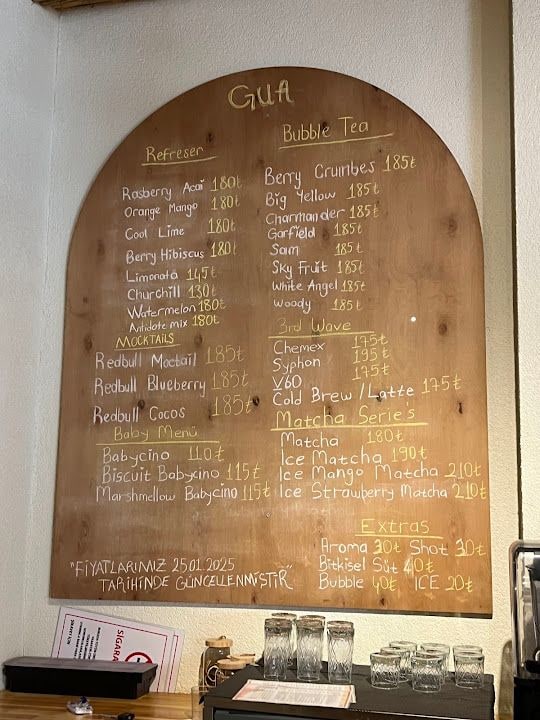 GUA
Refreser
Rasberry Acai 180₺
Orange Mango 180₺
Cool Lime 180₺
Berry Hibiscus 180₺
Limonata 145₺
Churchill 130₺
Watermelon 180₺
Antidote mix 180₺
MOCKTAILS
Redbull Moctail 185₺
Redbull Blueberry 185₺
Redbull Cocos 185₺
Baby Menü
Babycino 110₺
Biscuit Babycino 115₺
Marshmellow Babycino 115₺
"FİYATLARIMIZ 25.01.2025
TARİHİNDE GÜNCELLENMİŞTİR"
Bubble Tea
Berry Crumbes 185₺
Big Yellow 185₺
Charmander 185₺
Garfield 185₺
Sam 185₺
Sky Fruit 185₺
White Angel 185₺
Woody 185₺
3rd Wave
Chemex 175₺
Syphon 195₺
V60 175₺
Cold Brew / Latte 175₺
Matcha Series
Matcha 180₺
Ice Matcha 190₺
Ice Mango Matcha 210₺
Ice Strawberry Matcha 210₺
Extras
Aroma 30₺ Shot 30₺
Bitkisel Süt 40₺
Bubble 40₺ ICE 20₺
SIGARA